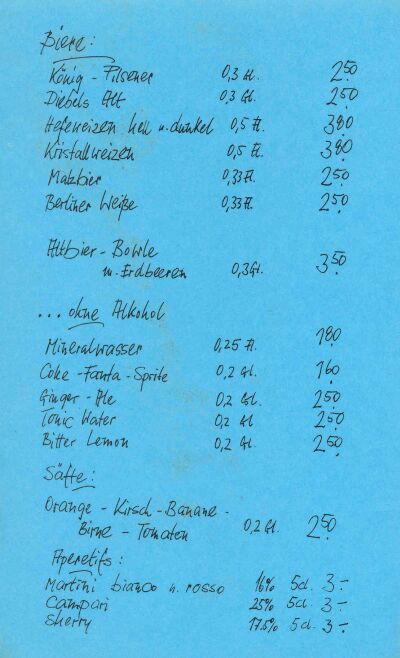 Biere:
König - Pilsener 0,3 Gl. 2.50
Diebels Alt 0,3 Gl. 2.50
Hefeweizen hell u. dunkel 0,5 Fl. 3.80
Kristallweizen 0,5 Fl. 3.80
Malzbier 0,33 Fl. 2.50
Berliner Weiße 0,33 Fl. 2.50
Altbier - Bowle
m. Erdbeeren 0,3 Gl. 3.50
... ohne Alkohol
Mineralwasser 0,25 Fl. 1.80
Coke - Fanta - Sprite 0,2 Gl. 1.60
Ginger - Ale 0,2 Gl. 2.50
Tonic Water 0,2 Gl. 2.50
Bitter Lemon 0,2 Gl. 2.50
Säfte:
Orange - Kirsch - Banane -
Birne - Tomaten 0,2 Gl. 2.50
Aperetifs:
Martini bianco u. rosso 16% 5cl. 3.-
Campari 25% 5cl. 3.-
Sherry 17.5% 5cl. 3.-